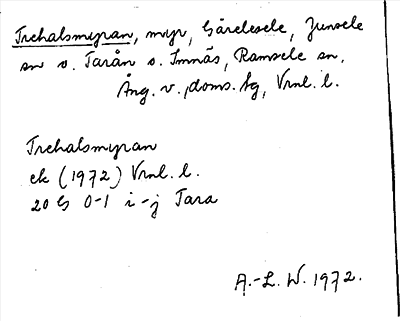 Trehalsmyran, myr, Gårelesele, Junsele
sn o. Tarån o. Imnäs, Ramsele sn,
Ång. v. doms. hg, Vrnl. l.
Trehalsmyran
ek (1972) Vrnl. l.
20 G 0-1 i-j Tara
A.-L. W. 1972.